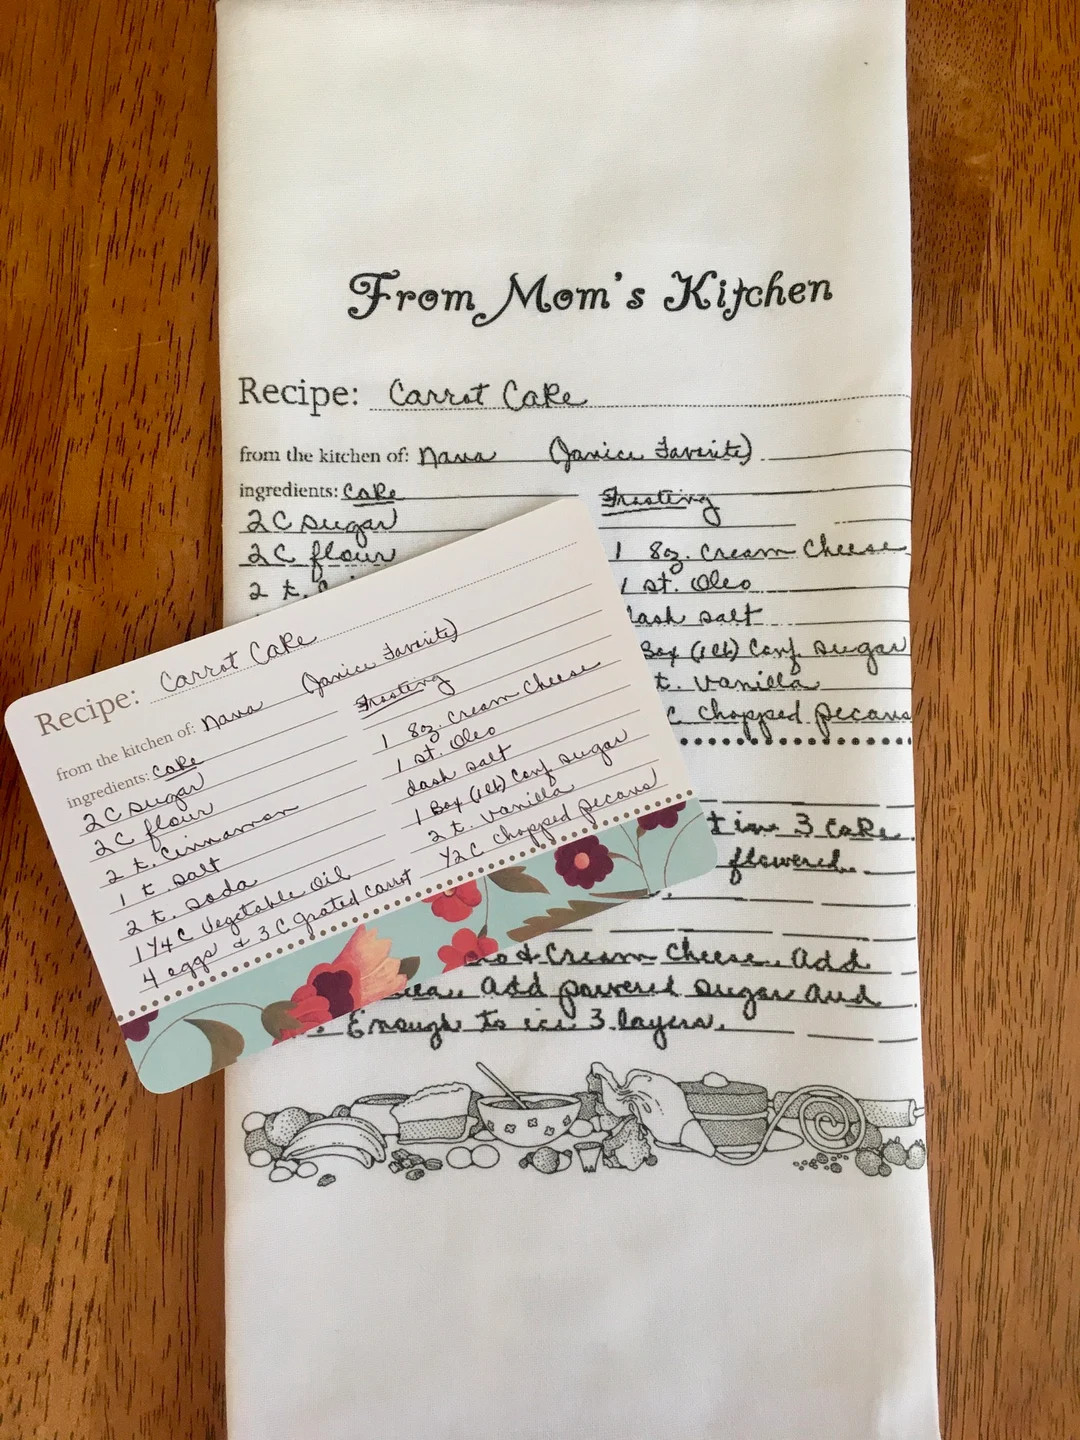 From Mom's Kitchen
Recipe: Carrot Cake
from the kitchen of: Nana (Janice Favorite)
ingredients: Cake Frosting
2 C sugar
2 C flour 1 8oz. Cream Cheese
2 t. 1 st. Oleo
dash salt
Box (1 lb) Conf. sugar
t. Vanilla
C chopped pecans
in 3 cake
flowered
& Cream Cheese. Add
Add powered sugar and
Enough to ice 3 layers.
Recipe: Carrot Cake
from the kitchen of: Nana (Janice Favorite)
ingredients: Cake Frosting
2 C sugar 1 8oz. Cream Cheese
2 C flour 1 st. Oleo
2 t. Cinnamon dash salt
1 t salt 1 Box (1 lb) Conf sugar
2 t. soda 2 t. Vanilla
1 1/4 C Vegetable Oil 1/2 C chopped pecans
4 eggs & 3 C grated carrot